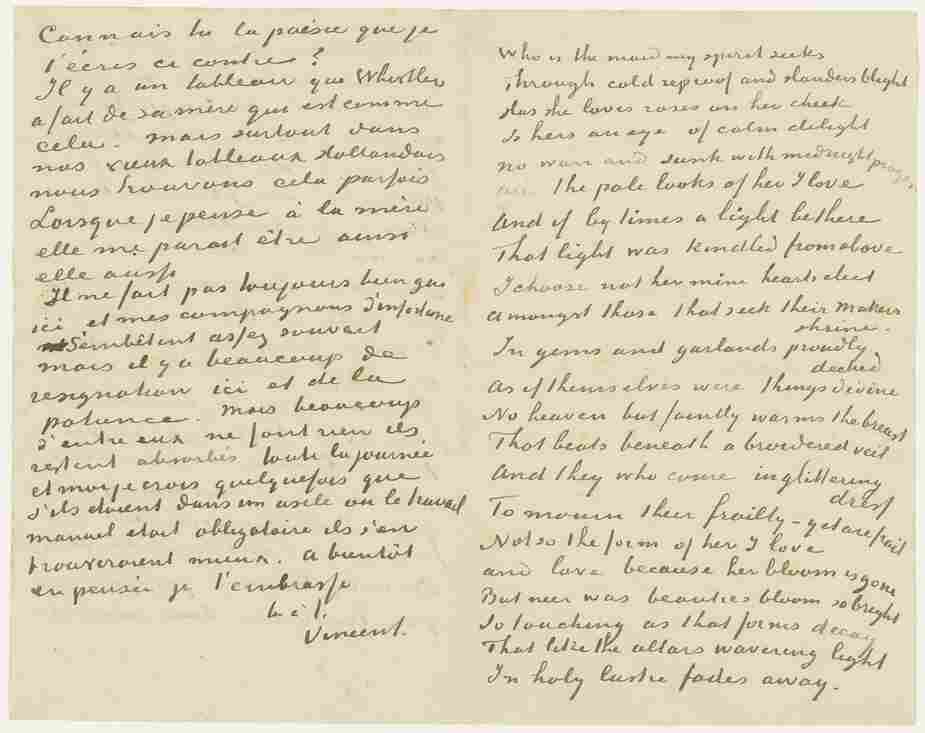 Connais tu la poésie que je
t'écris ci contre?
Il y a un tableau que Whistler
a fait de sa mère qui est comme
cela. mais surtout dans
nos vieux tableaux Hollandais
nous trouvons cela parfois
Lorsque je pense à la mère
elle me parait être ainsi
elle aussi
Il ne fait pas toujours bien gai
ici et mes compagnons d'infortune
s'embêtent assez souvent
mais il y a beaucoup de
resignation ici et de la
patience. Mais beaucoup
d'entre eux ne font rien ils
restent absorbés toute la journée
et moi je crois quelquefois que
s'ils étaient dans un asile ou le travail
manuel etait obligatoire ils s'en
trouveraient mieux. a bientôt
en pensée je t'embrasse
t. à t.
Vincent.
Who is the maid my spirit seeks
Through cold reproof and slanders blight
Has she loves roses on her cheek
Is hers an eye of calm delight
no wan and sunk with midnight prayer
are the pale looks of her I love
And if by times a light be there
That light was kindled from above
I choose not her mine hearts elect
amongst those that seek their Makers
shrine.
In gems and garlands proudly
decked
As if themselves were things divine
No heaven but faintly warms the breast
That beats beneath a broidered veil
And they who come in glittering
dress
To mourn their frailty – yet are frail
Not so the form of her I love
and love because her bloom is gone
But neer was beauties bloom so bright
So touching as that forms decay
That like the altars wavering light
In holy lustre fades away.